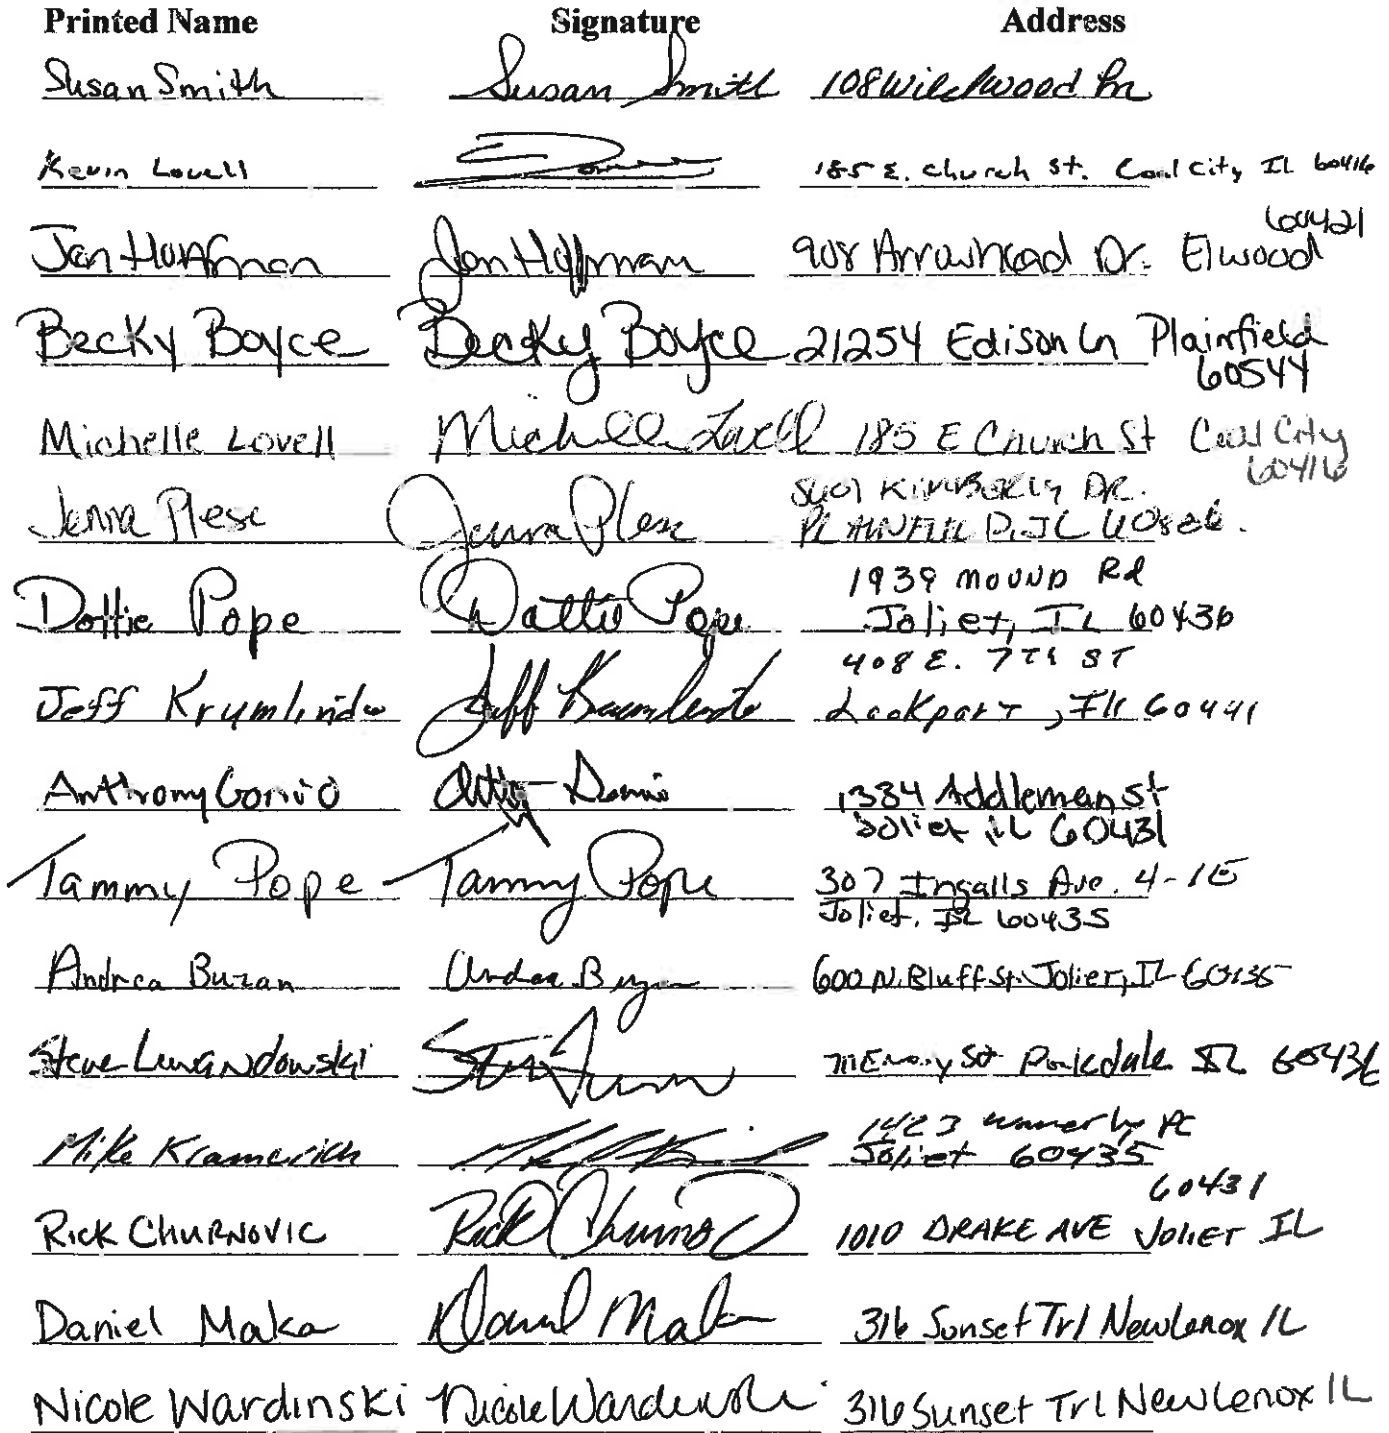 Printed Name Signature Address
Susan Smith Susan Smith 108 Wildwood Ln
Kevin Lovell 185 E. Church St. Coal City IL 60416
60421
Jan Hoffman Jan Hoffman 908 Arrowhead Dr. Elwood
Becky Boyce Becky Boyce 21254 Edison Ln Plainfield
60544
Michelle Lovell Michelle Lovell 185 E Church St Coal City
60416
KIMBERLY DR.
Jenna Plese Jenna Plese PLAINFIELD, IL
1939 MOUND Rd
Dottie Pope Dottie Pope Joliet, IL 60436
408 E. 7TH ST
Jeff Krumlinde Jeff Krumlinde Lockport, Ill 60441
Anthony Gonio 1334 Addleman St
Joliet IL 60431
Tammy Pope Tammy Pope 307 Ingalls Ave. 4-1E
Joliet. IL 60435
Andrea Buzan Andrea Buzan 600 N. Bluff St. Joliet, IL 60435
Steve Lewandowski St Rockdale IL 60436
1423
Mike Kramerich Joliet 60435
60431
RICK CHURNOVIC Rick Churnovic 1010 DRAKE AVE JOLIET IL
Daniel Maka Daniel Maka 316 Sunset Trl New Lenox IL
Nicole Wardinski Nicole Wardinski 316 Sunset Trl New Lenox IL